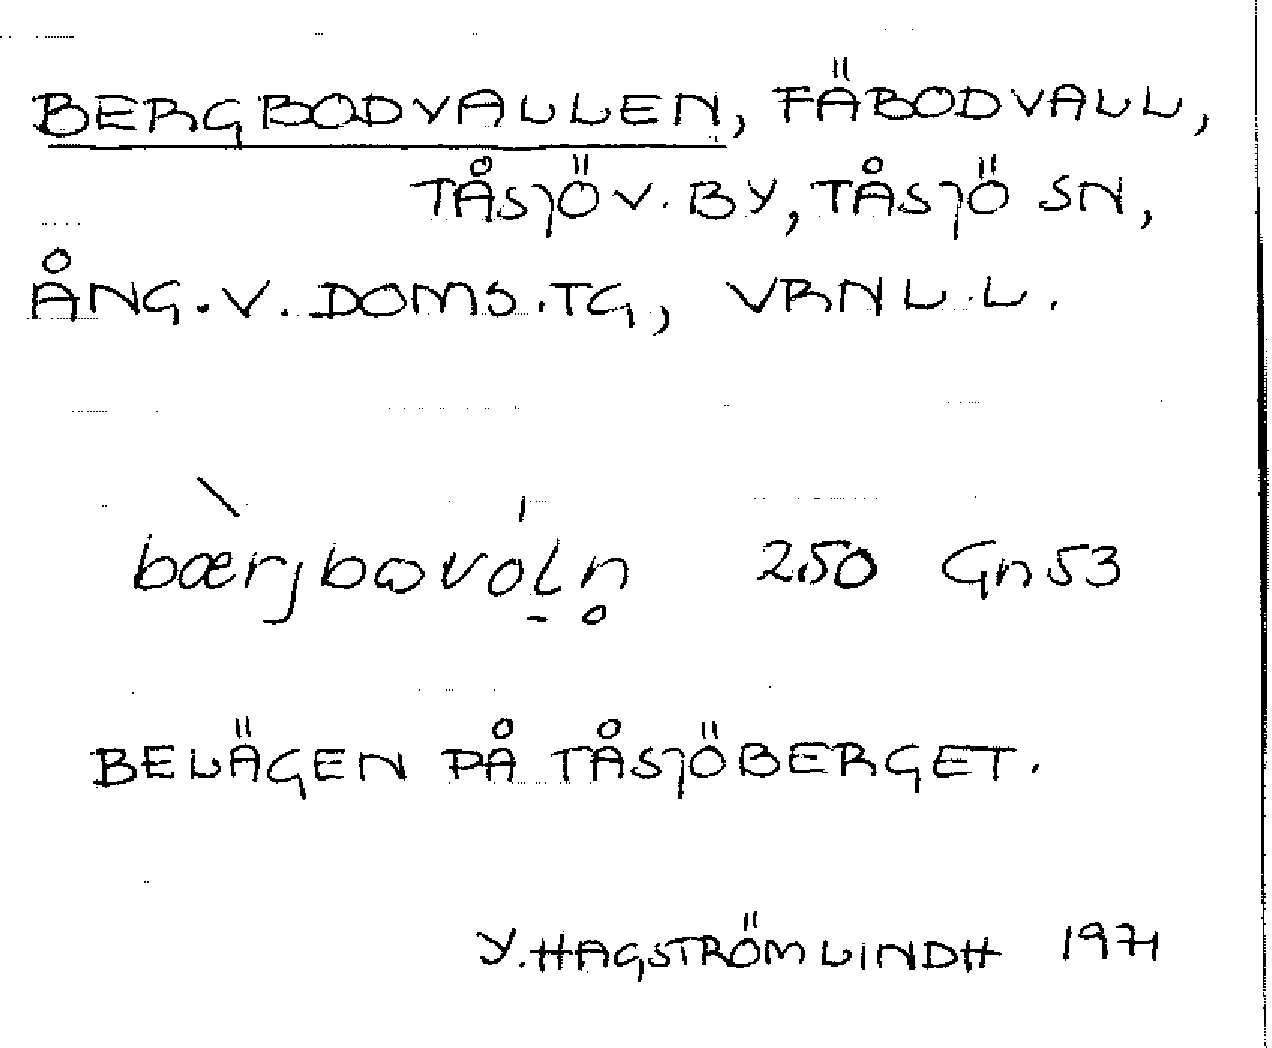 BERGBODVALLEN, FÄBODVALL,
TÅSJÖ V. BY, TÅSJÖ SN,
ÅNG. V. DOMS. TG, VRNL. L.
bærjbɷvóḻn̥ 250 Gn53
BELÄGEN PÅ TÅSJÖBERGET.
Y. HAGSTRÖM LINDH 1971